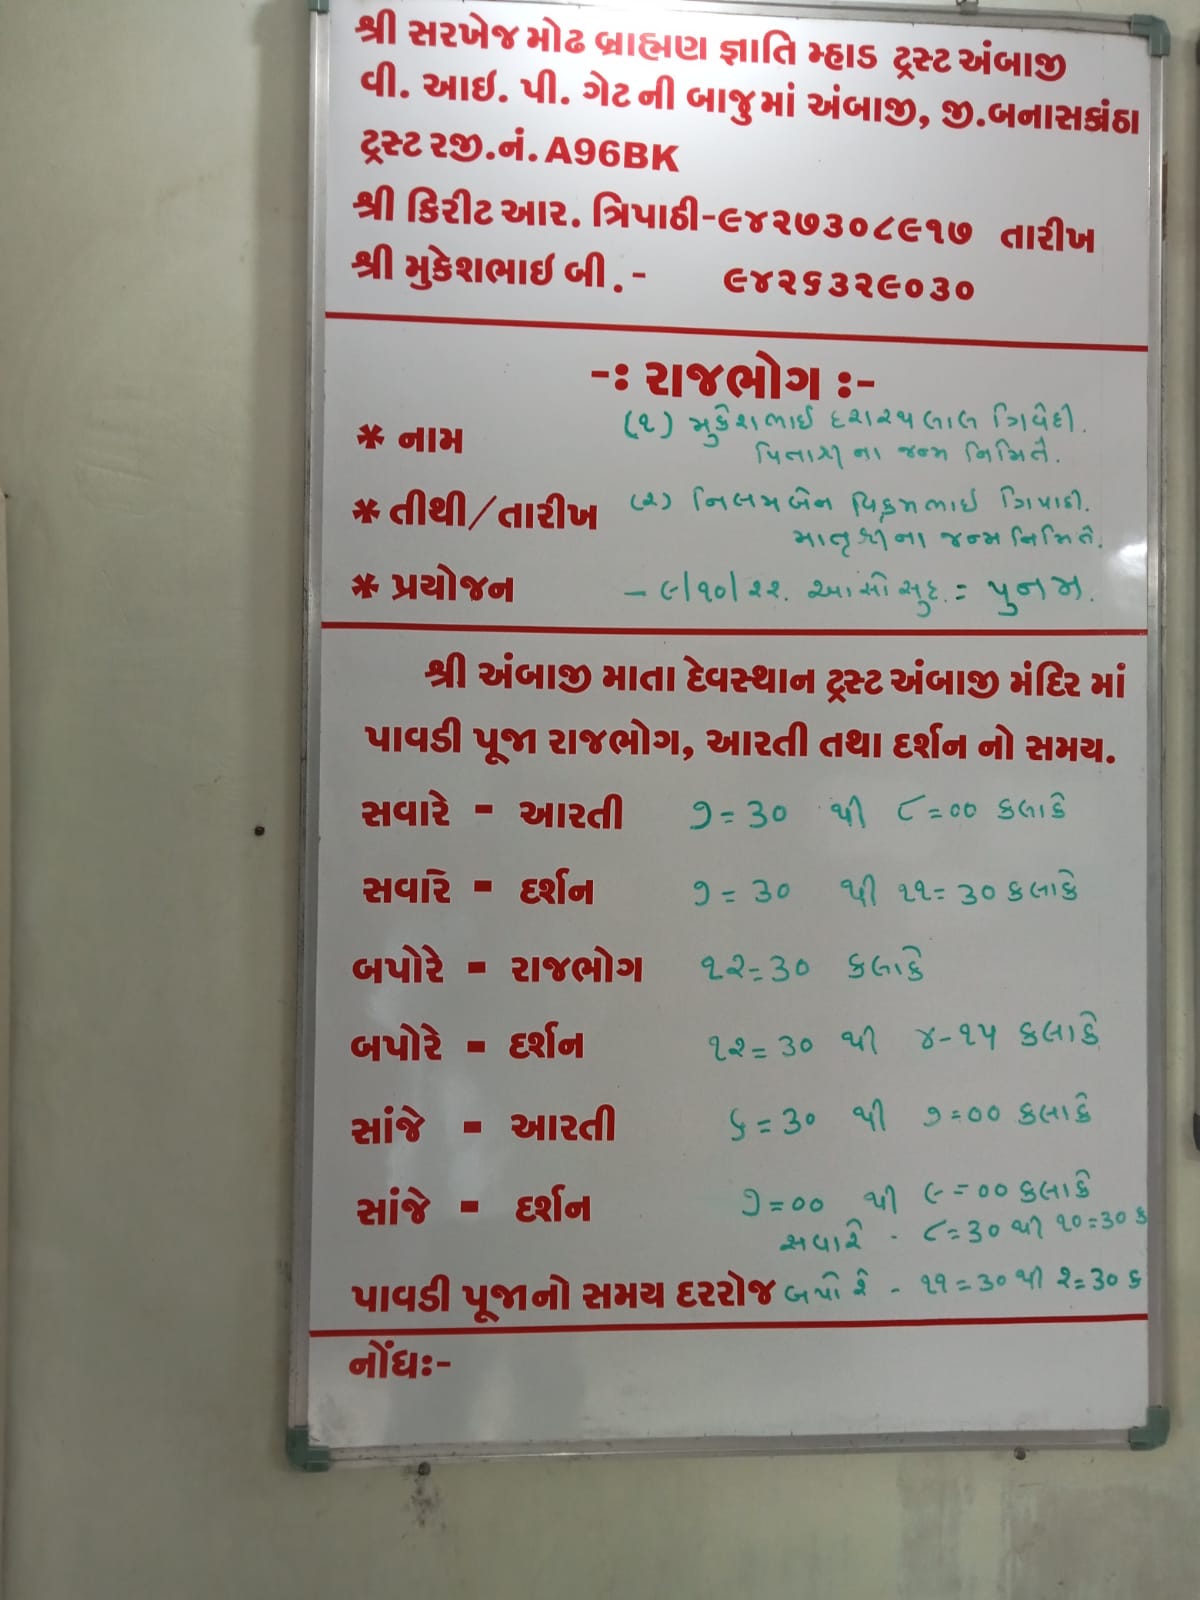 શ્રી સરખેજ મોઢ બ્રાહ્મણ જ્ઞાતિ મ્હાડ ટ્રસ્ટ અંબાજી
વી. આઇ. પી. ગેટ ની બાજુ માં અંબાજી, જી.બનાસકાંઠા
ટ્રસ્ટ રજી.નં. A96BK
શ્રી કિરીટ આર. ત્રિપાઠી-૯૪૨૭૩૦૮૯૧૭ તારીખ
શ્રી મુકેશભાઇ બી.- ૯૪૨૬૩૨૯૦૩૦
-: રાજભોગ :-
* નામ (૧) મુકેશભાઈ દશરથલાલ ત્રિવેદી.
પિતાશ્રી ના જન્મ નિમિતે.
* તીથી/તારીખ (૨) નિલમબેન વિક્રમભાઈ ત્રિપાઠી.
માતૃશ્રીના જન્મ નિમિતે.
* પ્રયોજન - ૯/૧૦/૨૨. આસો સુદ. = પુનમ.
શ્રી અંબાજી માતા દેવસ્થાન ટ્રસ્ટ અંબાજી મંદિર માં
પાવડી પૂજા રાજભોગ, આરતી તથા દર્શન નો સમય.
સવારે - આરતી ૭=૩૦ થી ૮=૦૦ કલાકે
સવારે - દર્શન ૭=૩૦ થી ૧૧=૩૦ કલાકે
બપોરે - રાજભોગ ૧૨=૩૦ કલાકે
બપોરે - દર્શન ૧૨=૩૦ થી ૪-૧૫ કલાકે
સાંજે - આરતી ૬=૩૦ થી ૭=૦૦ કલાકે
સાંજે - દર્શન ૭=૦૦ થી ૯=૦૦ કલાકે
સવારે - ૮=૩૦ થી ૧૦=૩૦ ક
પાવડી પૂજાનો સમય દરરોજ બપોરે - ૧૧=૩૦ થી ૧=૩૦ ક
નોંધઃ-